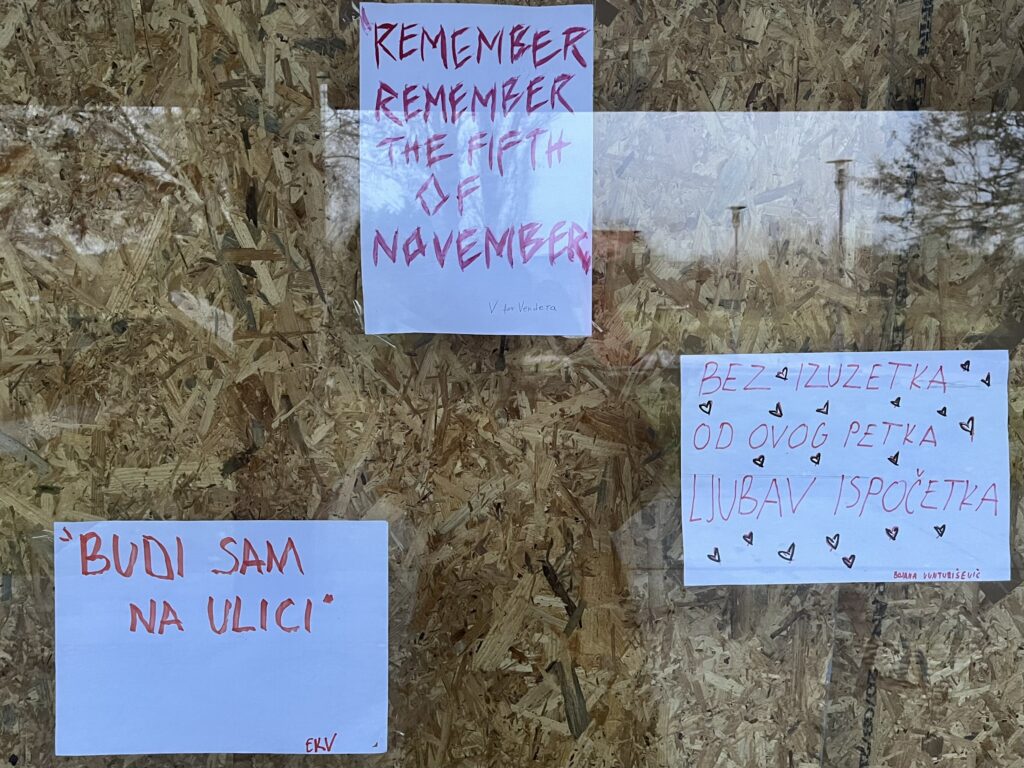 "REMEMBER
REMEMBER
THE FIFTH
OF
NOVEMBER
V for Vendeta
BEZ IZUZETKA
OD OVOG PETKA
LJUBAV ISPOČETKA
BOJANA VUNTURIŠEVIĆ
"BUDI SAM
NA ULICI"
EKV